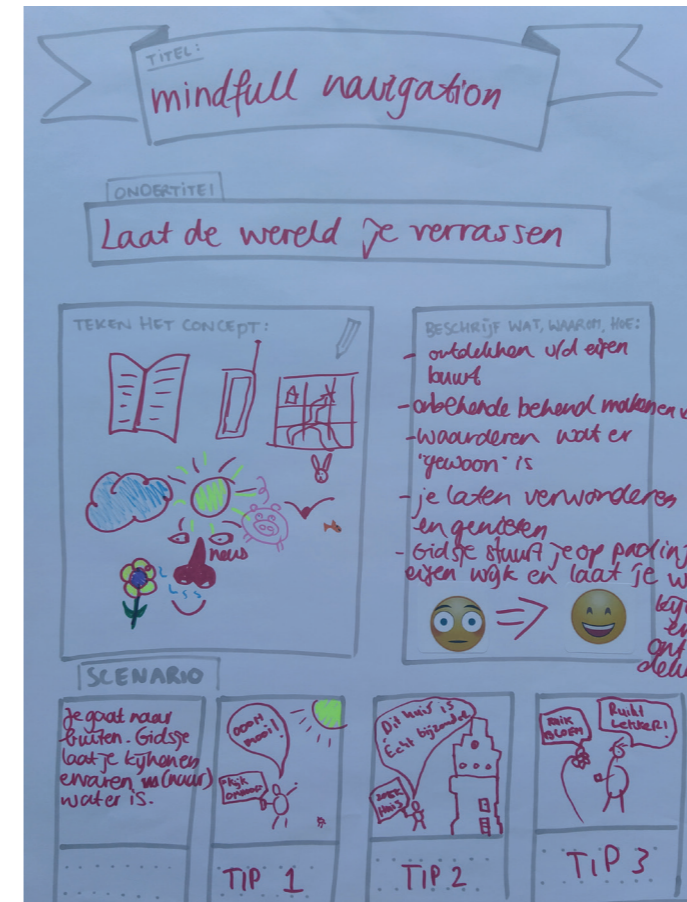 TITEL:
mindfull navigation
ONDERTITEL
Laat de wereld je verrassen
TEKEN HET CONCEPT:
neus
BESCHRIJF WAT, WAAROM, HOE:
- ontdekken v/d eigen
buurt
- onbekende bekend maken
- waarderen wat er
"gewoon" is
- je laten verwonderen
en genieten
- Gidsje stuurt je op pad in je
eigen wijk en laat je
SCENARIO
Je gaat naar
buiten. Gidsje
laat je kijken en
ervaren (naar)
wat er is.
OOOH
mooi!
Kijk
omhoog
Dit huis is
Echt bijzonder
ZOEK
HUIS
RUIK
BLOEM
Ruikt
LEKKER!
TIP 1
TIP 2
TIP 3